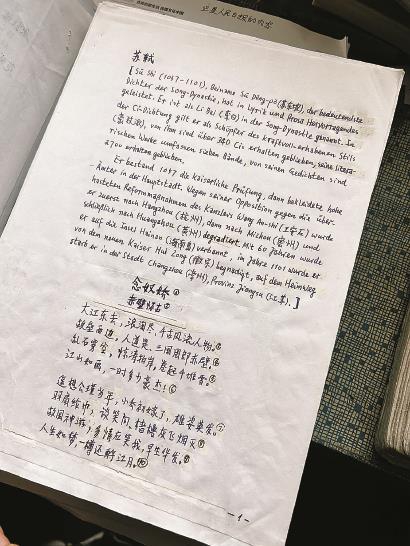 苏轼
[ Sū Shì (1037-1101), Beiname Sū Dōng-pō (苏东坡), der bedeutendste
Dichter der Song-Dynastie, hat in Lyrik und Prosa Hervorragendes
geleistet. Er ist als Li Bai (李白) in der Song-Dynastie genannt. In
der Cí-Dichtung gilt er als Schöpfer des kraftvoll-erhabenen Stils
(豪放派), von ihm sind über 340 Cis erhalten geblieben, seine litera-
rischen Werke umfassen sieben Bände, von seinen Gedichten sind
2700 erhalten geblieben.
Er bestand 1057 die kaiserliche Prüfung, dann bekleidete hohe
Ämter in der Hauptstadt. Wegen seiner Opposition gegen die über-
hasteten Reformmaßnahmen des Kanzlers Wang An-shi (王安石) wurde
er zuerst nach Hangzhou (杭州), dann nach Michou (密州) und
schließlich nach Huangzhou (黄州) degradiert. Mit 60 Jahren wurde
er auf die Insel Hainan (海南岛) verbannt, im Jahre 1101 wurde er
von dem neuen Kaiser Hui Zong (徽宗) begnadigt, auf dem Heimweg
starb er in der Stadt Changzhou (常州), Provinz Jiangsu (江苏). ]
念奴娇①
赤壁怀古②
大江东去，浪淘尽，千古风流人物。③
故垒西边，人道是，三国周郎赤壁。④
乱石穿空，惊涛拍岸，卷起千堆雪。⑤
江山如画，一时多少豪杰！⑥
遥想公瑾当年，小乔初嫁了，雄姿英发。⑦
羽扇纶巾，谈笑间，樯橹灰飞烟灭⑧
故国神游，多情应笑我，早生华发。⑨
人生如梦，一樽还酹江月。⑩
-1-